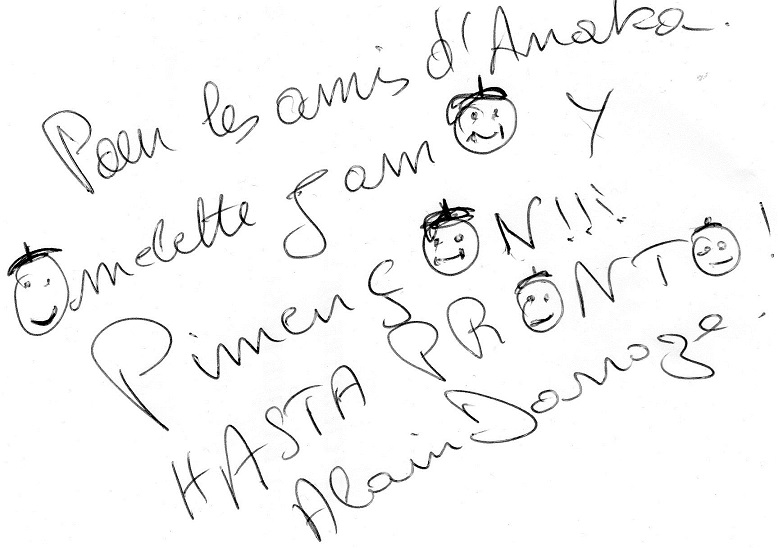 Pour les amis d'Anaka.
Omelette Jamón Y
PimençON!!!
HASTA PRONTO!
Alain Darroze.